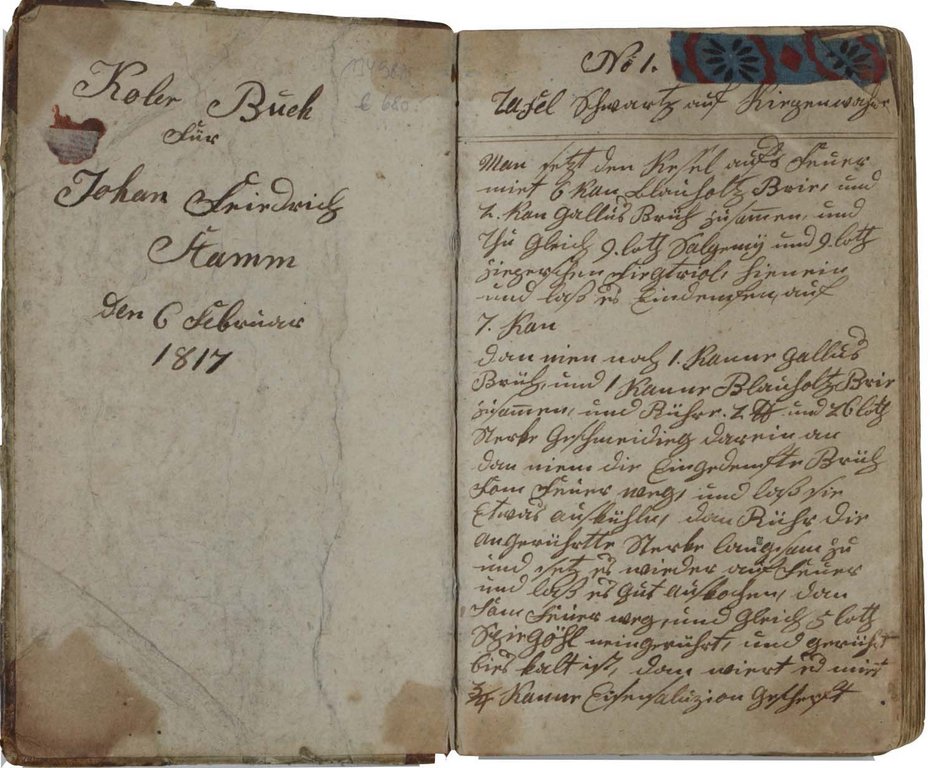 Koler Buch
Für
Johan Friedrich
Stamm
den 6 Februar
1817
No 1.
Tafel Schwartz auf
Man setzt den Kesel aufs Feuer
miet 6 Kan Blauholtz Brie, und
2. Kan Gallus Brüh zusamen, und
Thu Gleich 9. loth Salgemij und 9. loth
hienein
und laß es Eindemfen, auf
7. Kan
dan niem noch 1. Kanne Gallus
Brüh, und 1 Kanne Blauholtz Brie
zusamen, und Rühre. 2 ℔ und 26 loth
Sterke Geschmeidieg darein an
dan niem die Eingedemfte Brüh
Fom Feuer weg, und laß sie
Etwas auskühln, dan Rühr die
angerührtte Sterke langsam zu
und setz es wieder auf Feuer
und laß es gut auskochen, dan
Fom Feuer weg, und Gleich 5 loth
Spiegöhl neingerührt, und gerührt
bies kalt ist, dan wiert es miet
3/4 Kanne Eisensaluzion Gescherft